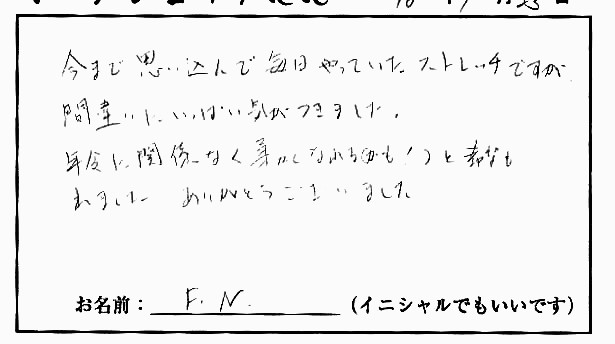 今まで思い込んで毎日やっていたストレッチですが
間違いにいっぱい気がつきました。
年令に関係なく
かも!)と希望も
れました ありがとうございました
お名前: F. N. (イニシャルでもいいです)